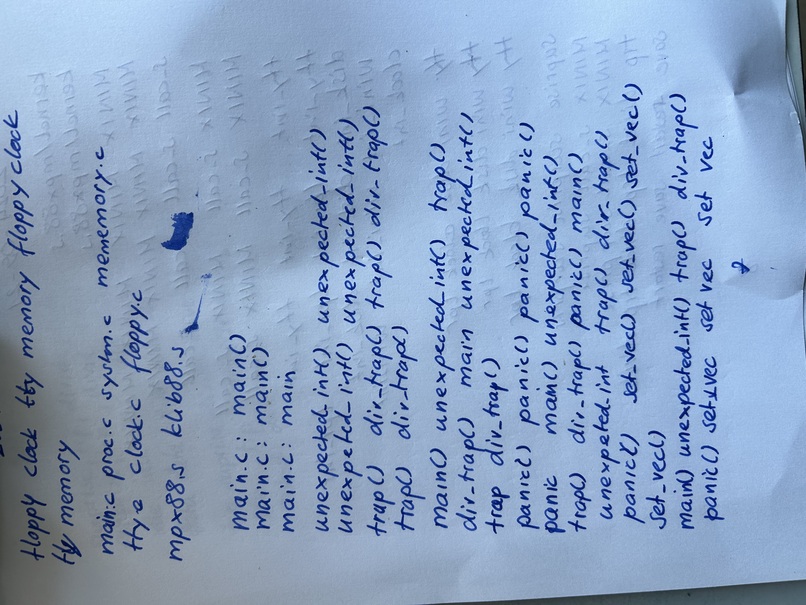 floppy clock tty memory floppy clock
tty memory
main.c proc.c system.c mememory.c
tty.c clock.c floppy.c
mpx88.s klib88.s
main.c: main()
main.c: main()
main.c: main
unexpected_int() unexpected_int()
unexpeted_int() unexpected_int()
trap() div_trap() trap() div_trap()
trap() div_trap()
main() unexpected_int() trap()
div_trap() main unexpected_int()
trap div_trap()
panic() panic() panic() panic()
panic main() unexpected_int()
trap() div_trap() panic() main()
unexpeted_int trap() div_trap()
panic() set_vec() set_vec() set_vec()
set_vec()
main() unexpected_int() trap() div_trap()
panic() set_vec set vec set vec